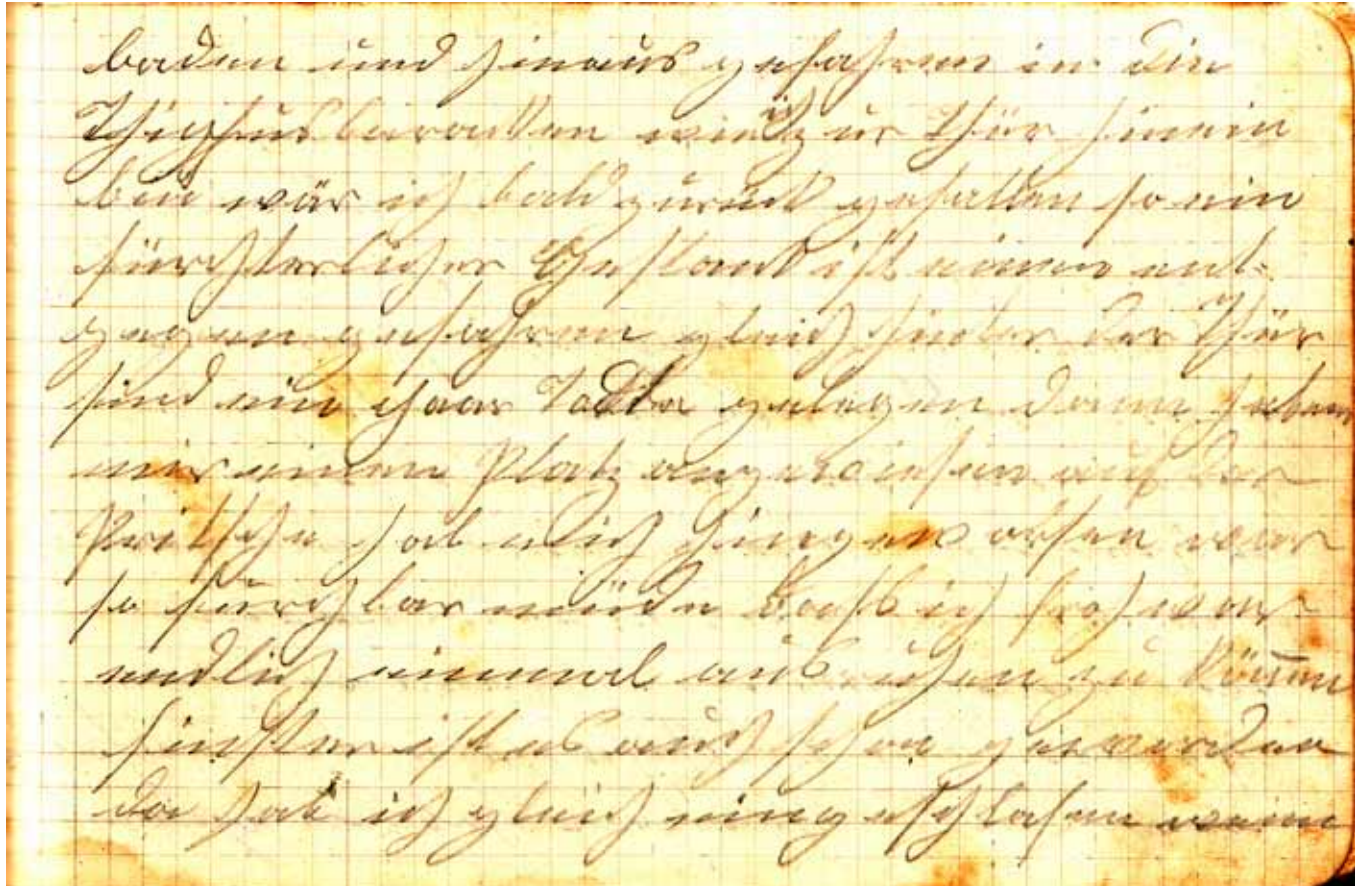 baden und hinaus gefahren in die
Thiphusbaraken wie ich zur Thür hinein
bin wär ich bald zurück gefallen so ein
fürchterlicher Gestank ist einen ent-
gegen gefahren gleich hinter der Thür
sind ein paar Todte gelegen dann haben
mir einen Platz angewiesen auf der
Pritsche hab mich hingeworfen war
so furchtbar müde daß ich froh war
endlich einmal ausruhen zu können
finster ist es auch schon geworden
da hab ich gleich eingeschlafen wenn